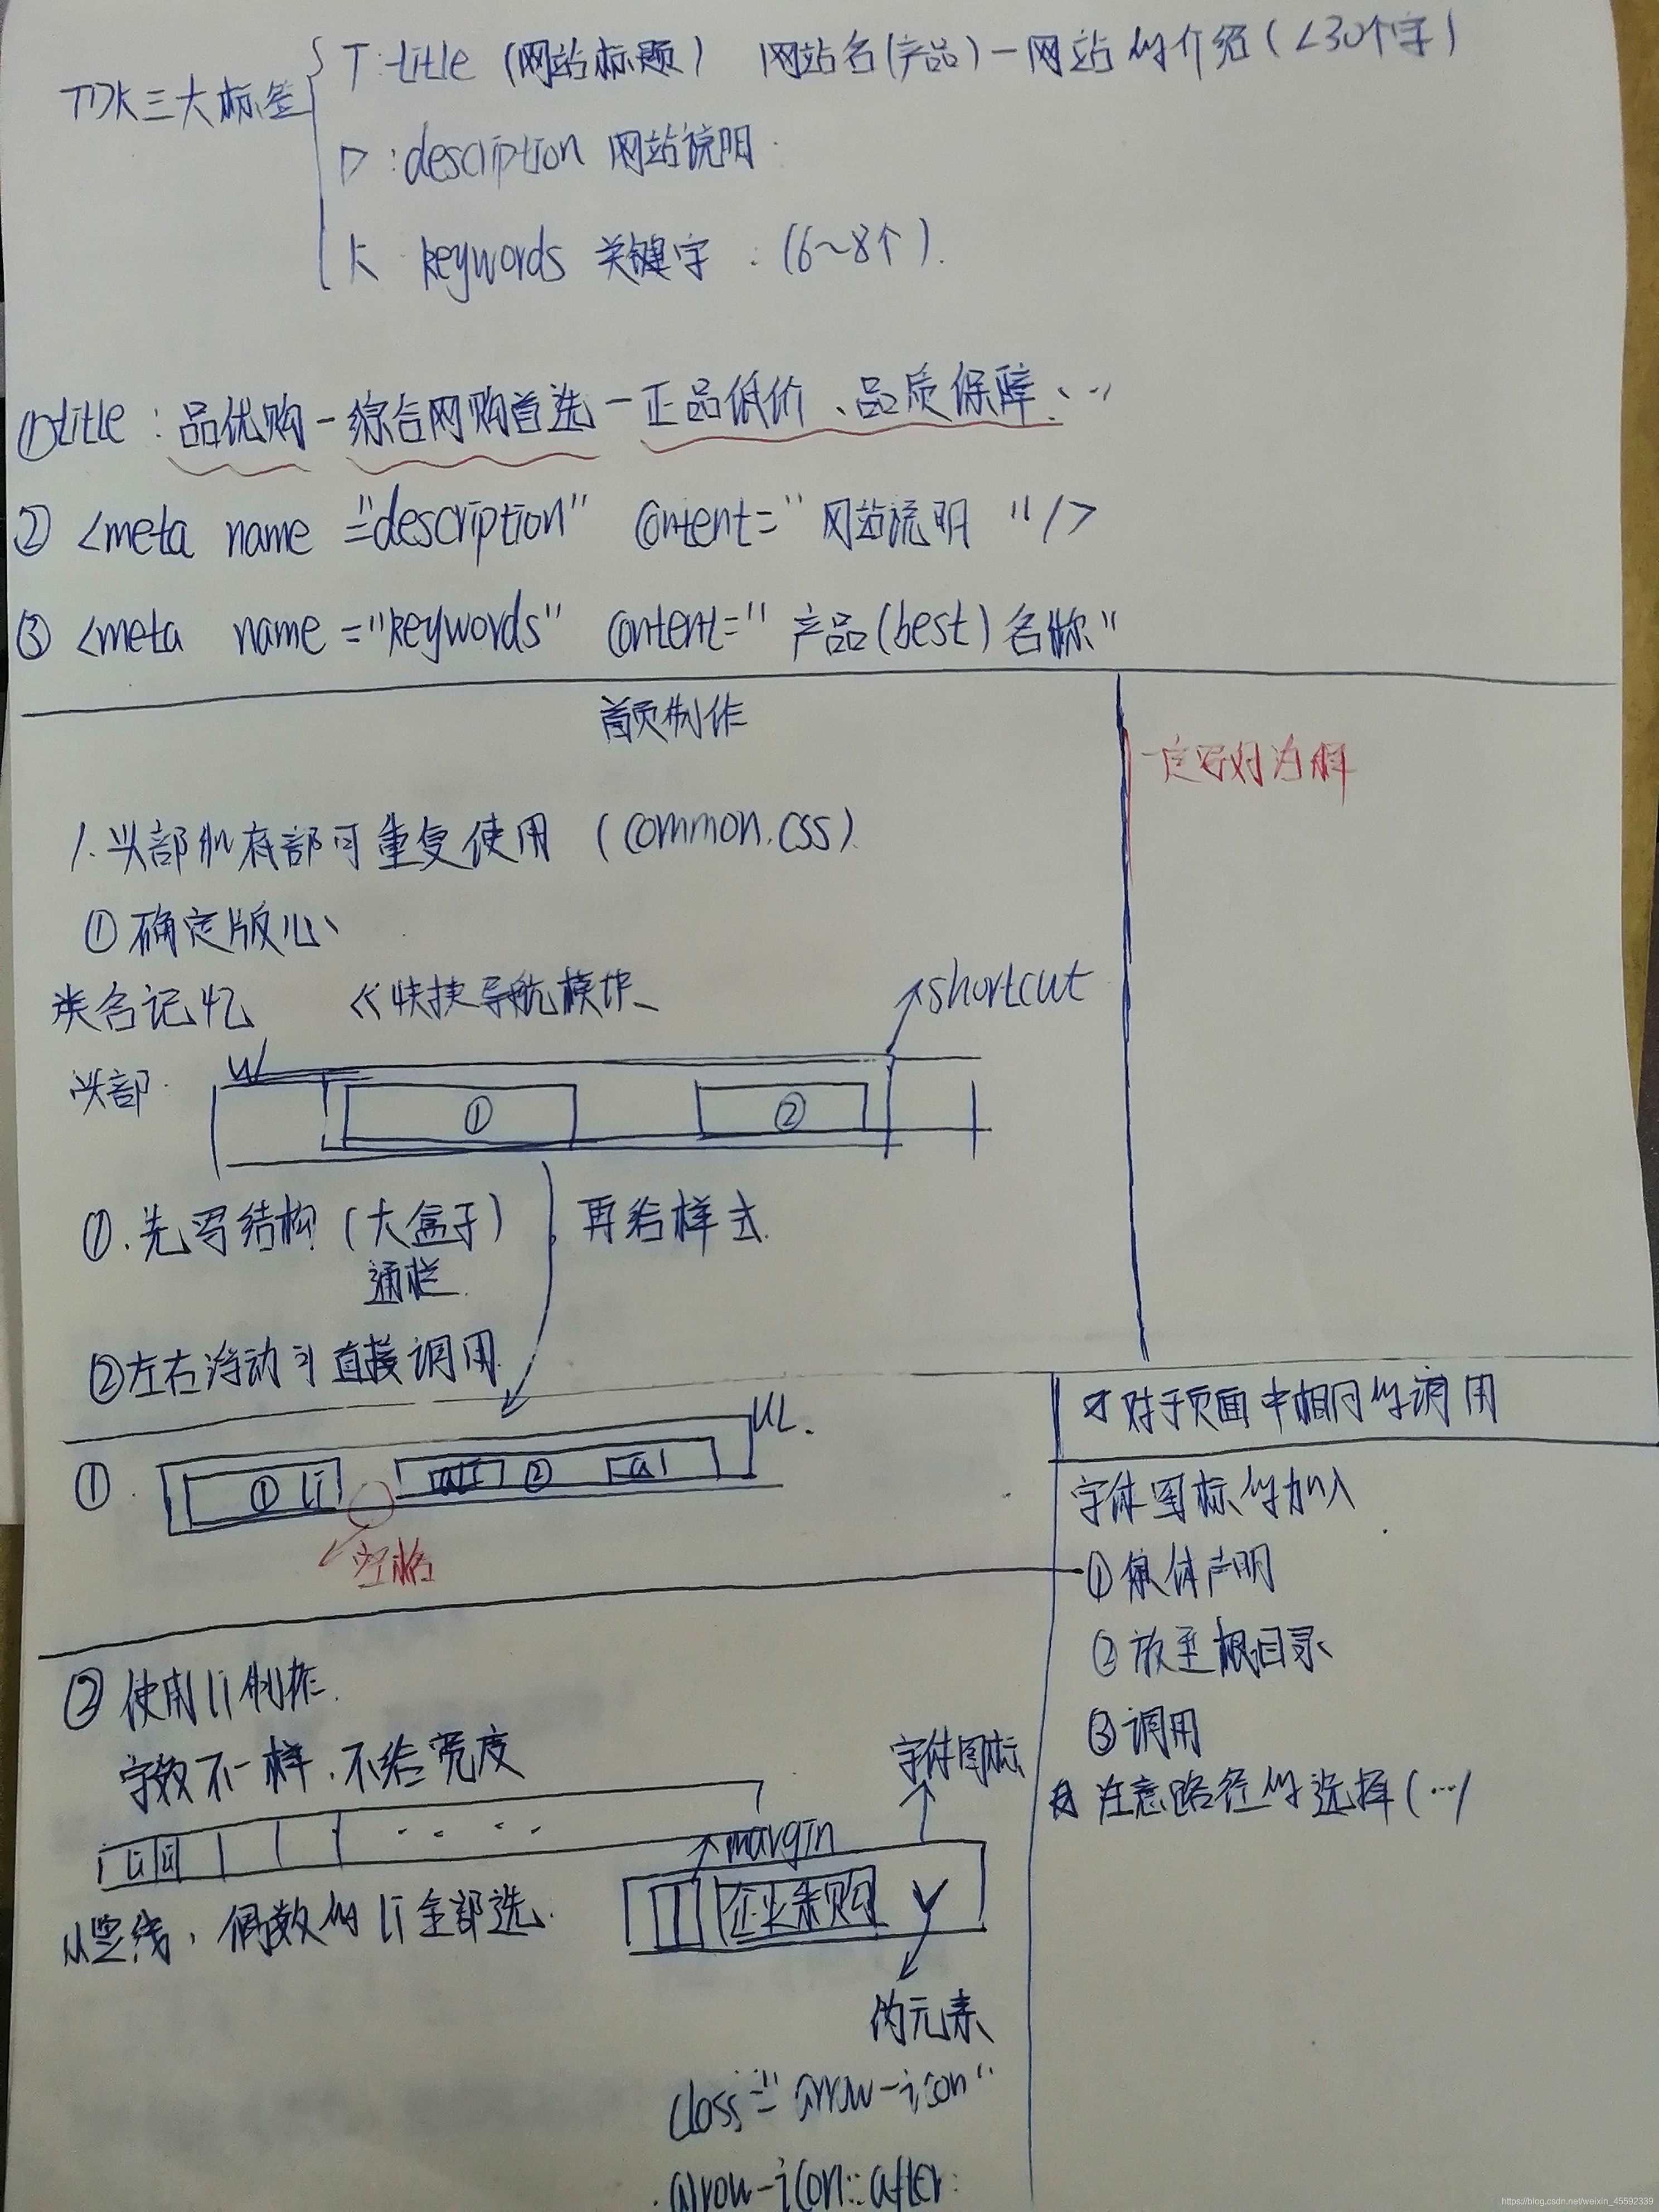 TDK三大标签
T:title (网站标题) 网站名(产品)-网站的介绍(<30个字)
D:description 网站说明
K keywords 关键字:(6~8个).
①title:品优购-综合网购首选-正品低价、品质保障、…
②<meta name="description" content="网站说明"/>
③<meta name="keywords" content="产品(best)名称"
首页制作
一定写好注释
1.头部和底部可重复使用 (common.css)
①确定版心
类名记忆 <快捷导航模块
shortcut
头部
W
① ②
①.先写结构(大盒子) 再给样式
通栏
②左右浮动 直接调用
UL.
① ①li ②
空格
对于页面中相同的调用
字体图标的加入
①字体声明
②放至根目录
③调用
注意路径的选择(…)
②使用li制作.
字数不一样,不给宽度
字体图标
li li
margin
企业采购
从竖线,偶数的li全部选.
伪元素
class="arrow-icon"
.arrow-icon::after
https://blog.csdn.net/weixin_45592339